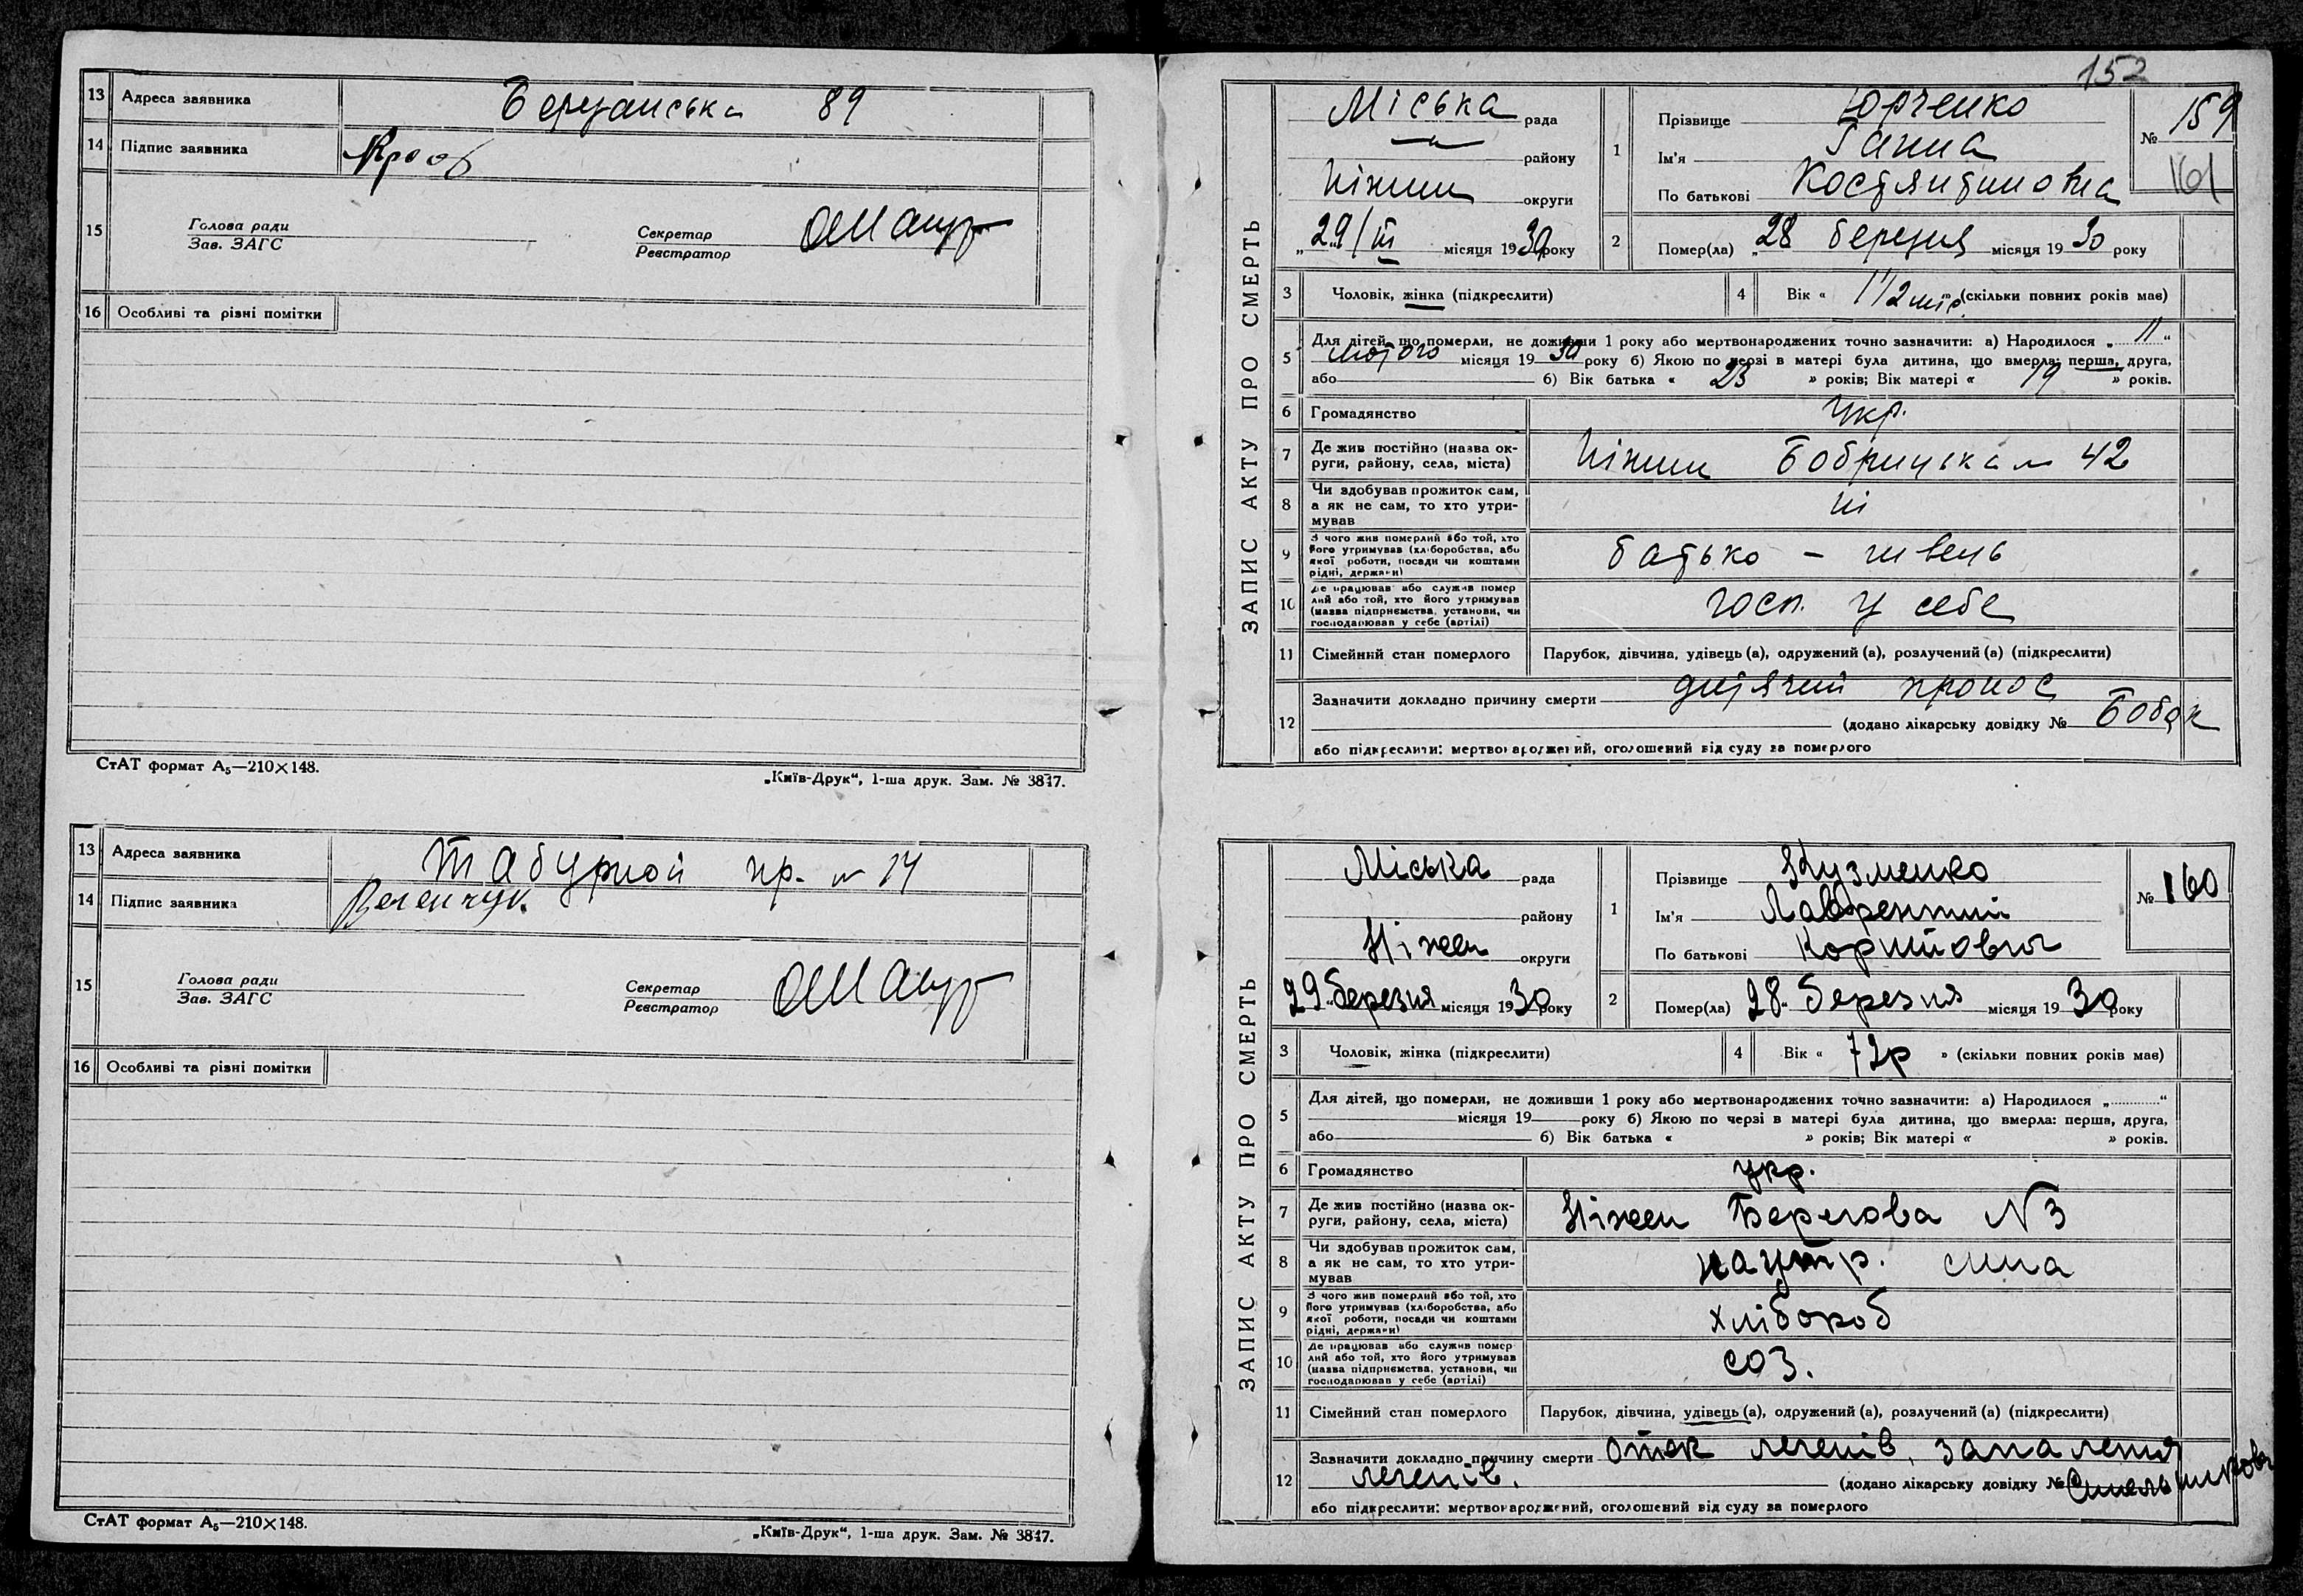 13 Адреса заявника Березанська 89
14 Підпис заявника
15 Голова ради
Зав. ЗАГС
Секретар
Реєстратор
16 Особливі та різні помітки
СтАТ формат А₅—210×148.
„Київ-Друк“, 1-ша друк. Зам. № 3847.
13 Адреса заявника Табурной пр. № 14
14 Підпис заявника
15 Голова ради
Зав. ЗАГС
Секретар
Реєстратор
16 Особливі та різні помітки
СтАТ формат А₅—210×148.
„Київ-Друк“, 1-ша друк. Зам. № 3847.
152
ЗАПИС АКТУ ПРО СМЕРТЬ
Міська рада
району
Ніжин округи
„29/III місяця 1930 року
1 Прізвище Юрченко
Ім'я Ганна
По батькові Костянтиновна
№ 159
161
2 Помер(ла) „28 березня місяця 1930 року
3 Чоловік, жінка (підкреслити)
4 Вік « 1 1/2 міс. (скільки повних років має)
5 Для дітей, що померли, не доживши 1 року або мертвонароджених точно зазначити: а) Народилося „11“
лютого місяця 1930 року б) Якою по черзі в матері була дитина, що вмерла: перша, друга,
або б) Вік батька « 23 » років; Вік матері « 19 » років.
6 Громадянство укр.
7 Де жив постійно (назва округи, району, села, міста) Ніжин Бобрицька № 42
8 Чи здобував прожиток сам, а як не сам, то хто утримував ні
9 З чого жив померлий або той, хто його утримував (хліборобства, або якої роботи, посади чи коштами рідні, держави) батько – швець
10 Де працював або служив померлий або той, хто його утримував (назва підприємства, установи, чи господарював у себе (артілі) госп. у себе
11 Сімейний стан померлого Парубок, дівчина, удівець (а), одружений (а), розлучений (а) (підкреслити)
12 Зазначити докладно причину смерти дитячий пронос
(додано лікарську довідку № Бобок
або підкреслити: мертвонароджений, оголошений від суду за померлого
ЗАПИС АКТУ ПРО СМЕРТЬ
Міська рада
району
Ніжен округи
29 березня місяця 1930 року
1 Прізвище Кузменко
Ім'я Лаврентий
По батькові
№ 160
2 Помер(ла) 28 березня місяця 1930 року
3 Чоловік, жінка (підкреслити)
4 Вік « 72р » (скільки повних років має)
5 Для дітей, що померли, не доживши 1 року або мертвонароджених точно зазначити: а) Народилося „ “
місяця 19 року б) Якою по черзі в матері була дитина, що вмерла: перша, друга,
або б) Вік батька « » років; Вік матері « » років.
6 Громадянство укр.
7 Де жив постійно (назва округи, району, села, міста) Ніжен Берегова N 3
8 Чи здобував прожиток сам, а як не сам, то хто утримував на утр. сина
9 З чого жив померлий або той, хто його утримував (хліборобства, або якої роботи, посади чи коштами рідні, держави) хлібороб
10 Де працював або служив померлий або той, хто його утримував (назва підприємства, установи, чи господарював у себе (артілі) соз.
11 Сімейний стан померлого Парубок, дівчина, удівець (а), одружений (а), розлучений (а) (підкреслити)
12 Зазначити докладно причину смерти отек легенів, запалення
легенів.
(додано лікарську довідку №
або підкреслити: мертвонароджений, оголошений від суду за померлого